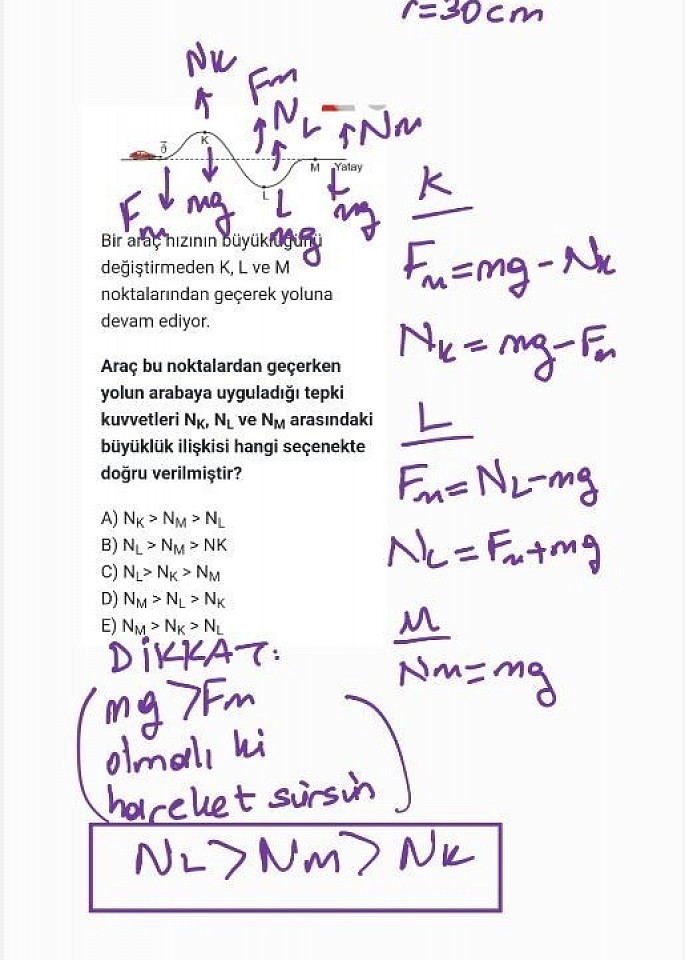 r=30cm
NK
Fm
NL
NM
K
ϑ
M
Yatay
L
Fm
mg
mg
mg
Bir araç hızının büyüklüğünü
değiştirmeden K, L ve M
noktalarından geçerek yoluna
devam ediyor.
Araç bu noktalardan geçerken
yolun arabaya uyguladığı tepki
kuvvetleri NK, NL ve NM arasındaki
büyüklük ilişkisi hangi seçenekte
doğru verilmiştir?
A) NK > NM > NL
B) NL > NM > NK
C) NL> NK > NM
D) NM > NL > NK
E) NM > NK > NL
K
Fm=mg-NK
NK=mg-Fm
L
Fm=NL-mg
NL=Fm+mg
M
Nm=mg
DİKKAT:
(mg>Fm
olmalı ki
hareket sürsün)
NL>NM>NK